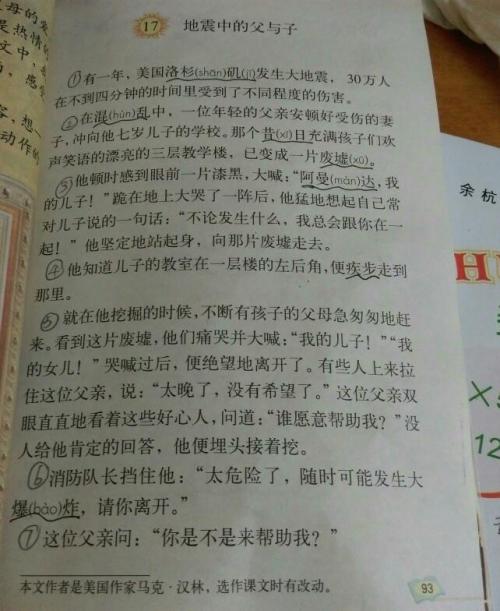 17 地震中的父与子
①有一年，美国洛杉(shān)矶(jī)发生大地震，30万人
在不到四分钟的时间里受到了不同程度的伤害。
②在混(hùn)乱中，一位年轻的父亲安顿好受伤的妻
子，冲向他七岁儿子的学校。那个昔(xī)日充满孩子们欢
声笑语的漂亮的三层教学楼，已变成一片废墟(xū)。
③他顿时感到眼前一片漆黑，大喊：“阿曼(màn)达，我
的儿子！”跪在地上大哭了一阵后，他猛地想起自己常
对儿子说的一句话：“不论发生什么，我总会跟你在一
起！”他坚定地站起身，向那片废墟走去。
④他知道儿子的教室在一层楼的左后角，便疾步走到
那里。
⑤就在他挖掘的时候，不断有孩子的父母急匆匆地赶
来。看到这片废墟，他们痛哭并大喊：“我的儿子！”“我
的女儿！”哭喊过后，便绝望地离开了。有些人上来拉
住这位父亲，说：“太晚了，没有希望了。”这位父亲双
眼直直地看着这些好心人，问道：“谁愿意帮助我？”没
人给他肯定的回答，他便埋头接着挖。
⑥消防队长挡住他：“太危险了，随时可能发生大
爆(bào)炸，请你离开。”
⑦这位父亲问：“你是不是来帮助我？”
本文作者是美国作家马克·汉林，选作课文时有改动。
93
父母的爱
是热情的
文中，
感
容，想一
动作的
余杭
H
12